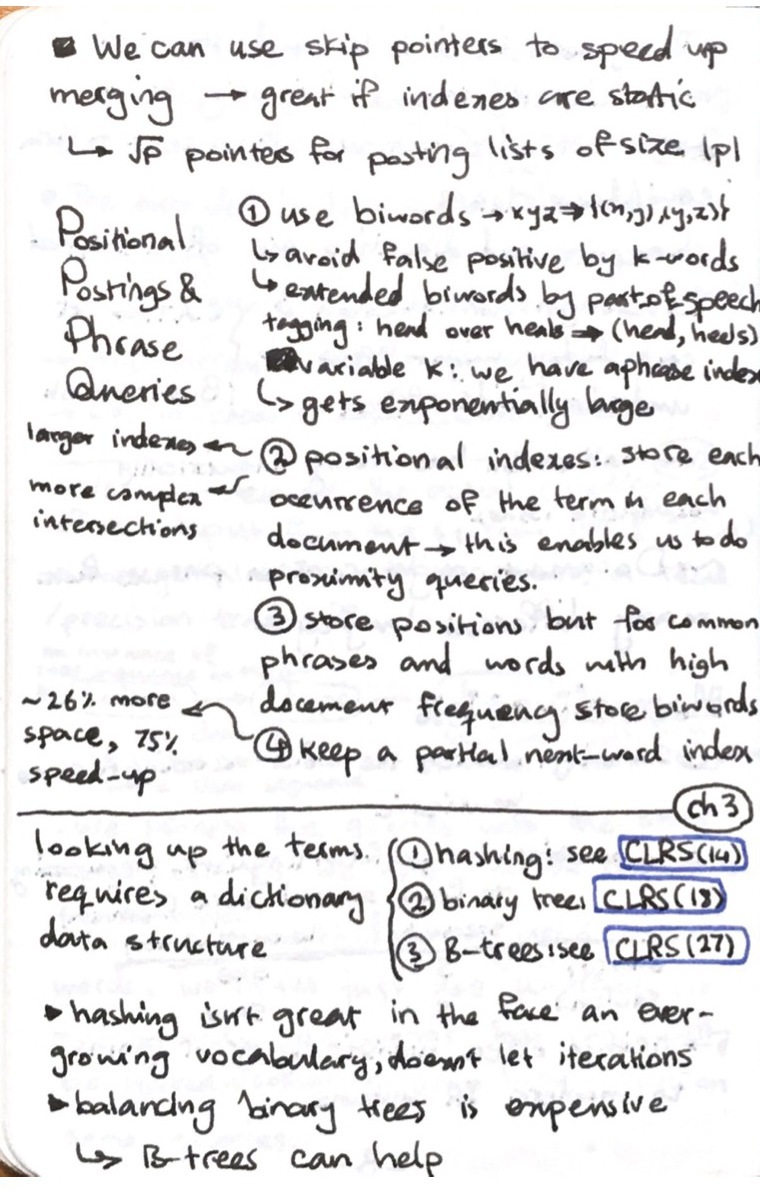 ▪ We can use skip pointers to speed up
merging → great if indexes are static
↳ √P pointers for posting lists of size |p|
Positional
Postings &
Phrase
Queries
① use biwords → xyz ⇒ {(x,y),(y,z)}
↳ avoid false positive by k-words
↳ extended biwords by part of speech
tagging: head over heals ⇒ (head, heels)
variable k: we have a phrase index
↳ gets exponentially large
larger indexes ←
more complex ←
intersections
② positional indexes: store each
occurrence of the term in each
document → this enables us to do
proximity queries.
③ store positions but for common
phrases and words with high
document frequency store biwords
~26% more ←
space, 75%
speed-up
④ keep a partial next-word index
ch 3
looking up the terms
requires a dictionary
data structure
① hashing: see CLRS(14)
② binary trees CLRS(18)
③ B-trees: see CLRS(27)
▸ hashing isn't great in the face an ever-
growing vocabulary, doesn't let iterations
▸ balancing binary trees is expensive
↳ B-trees can help